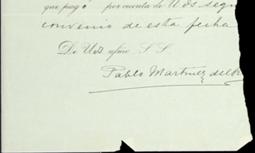 que pagó por cuenta de Uds segun
convenio de esta fecha
De Uds afmo S. S.
Pablo Martinez del